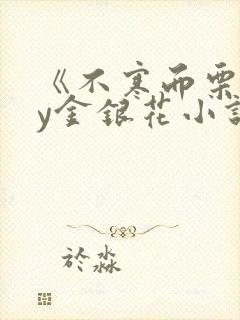 《不寒而栗
y金银花小説
於淼